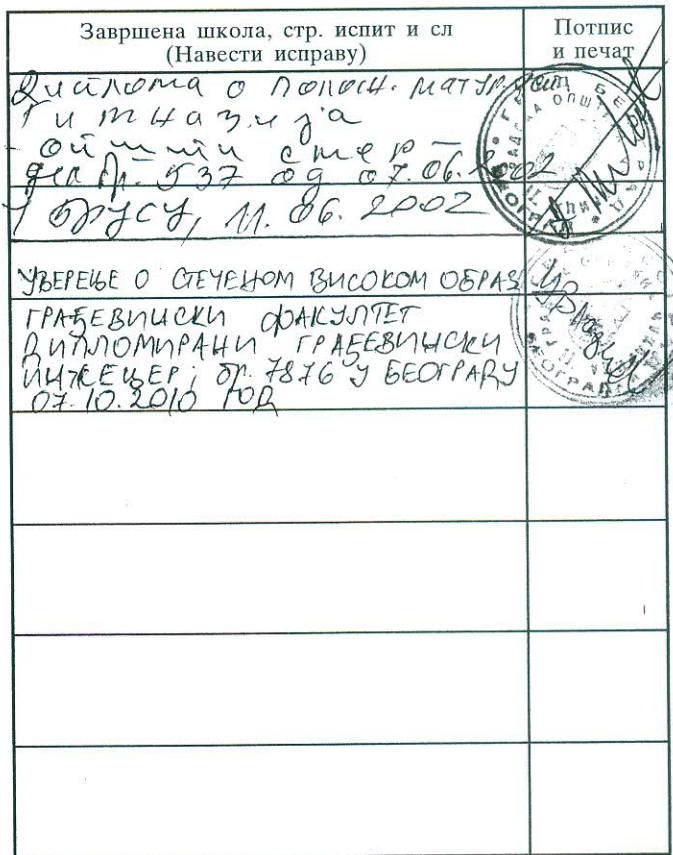 Завршена школа, стр. испит и сл
(Навести исправу)
Потпис
и печат
Диплома о положн. матур. испит
Гимназија
општи смер
дел бр. 537 од 07.06.2002
У Брусу, 11.06.2002
УВЕРЕЊЕ О СТЕЧЕНОМ ВИСОКОМ ОБРАЗ
ГРАЂЕВИНСКИ ФАКУЛТЕТ
ДИПЛОМИРАНИ ГРАЂЕВИНСКИ
ИНЖЕЊЕР; бр. 7876 У БЕОГРАДУ
07.10.2010 ГОД
БЕОГРАД